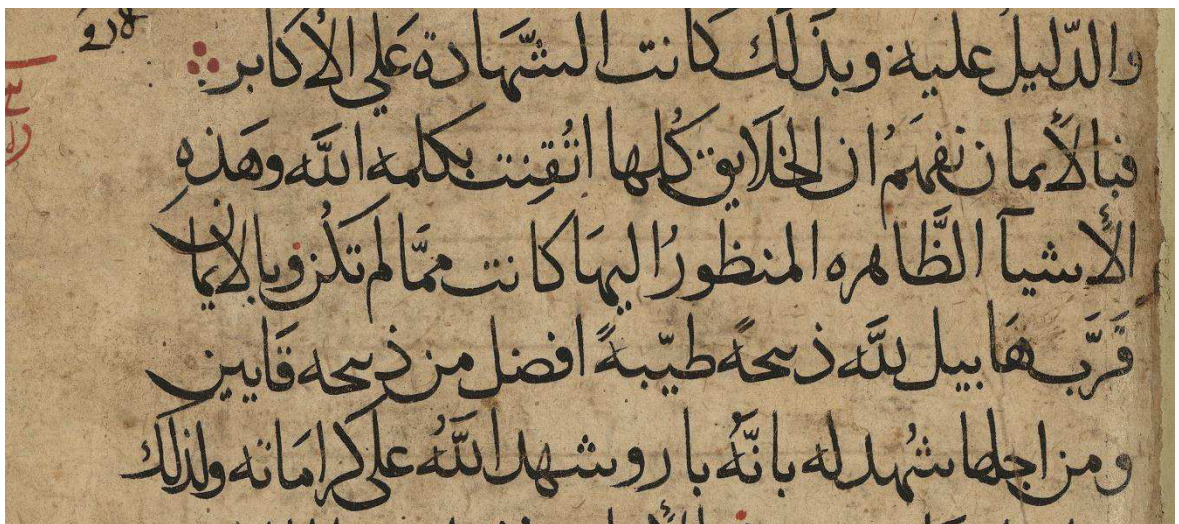 والدّليل عليه وبذلك كانت الشّهادة علي الأكابر
فبالأيمان نفهمُ ان الخلايق كُلها اتُقِنت بكلمه اللّه وهَذهِ
الأشيآ الظَّاهره المنظورُ اليهَا كانت ممَّا لم تكن وبالايمان
قَرَّب هَابيل للَّه ذبيحةً طيّبةً افضل من ذبيحه قَايين
ومن اجلها شُهد له بانَّهُ بار وشهد اللَّهُ على كرامَاته ولذلك